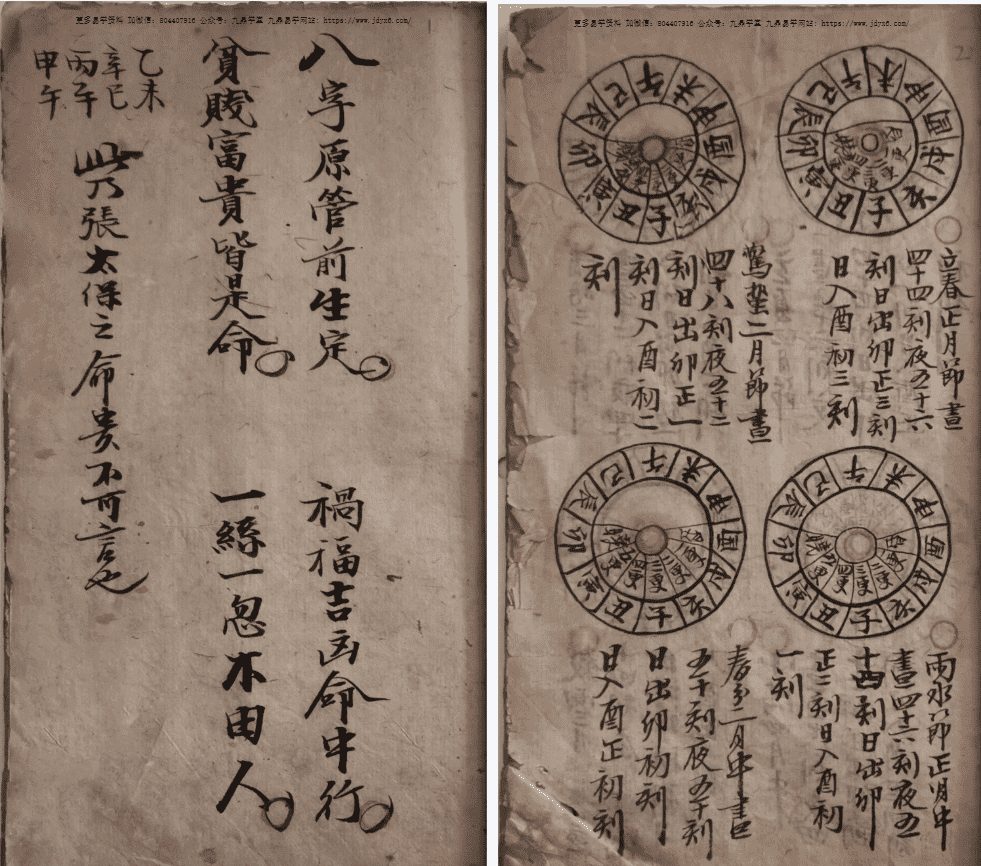 更多易学资料 加微信：804407916 公众号：九鼎学堂 九鼎易学网站：https://www.jdyx6.com/
八字原管前生定 禍福吉凶命中行
貧賤富貴皆是命 一絲一忽不由人
乙未
辛巳
丙午
甲午
此乃張太保之命貴不可言也
更多易学资料 加微信：804407916 公众号：九鼎学堂 九鼎易学网站：https://www.jdyx6.com/
22
子丑寅卯辰巳午未申酉戌亥
立春正月節晝
四十四刻夜五十六
刻日出卯正三刻
日入酉初三刻
子丑寅卯辰巳午未申酉戌亥
驚蟄二月節晝
四十八刻夜五十二
刻日出卯正一
刻日入酉初二
刻
子丑寅卯辰巳午未申酉戌亥
雨水節正月中
晝四十六刻夜五
十四刻日出卯
正二刻日入酉初
一刻
子丑寅卯辰巳午未申酉戌亥
春分二月中晝
五十刻夜五十刻
日出卯初刻
日入酉正初刻